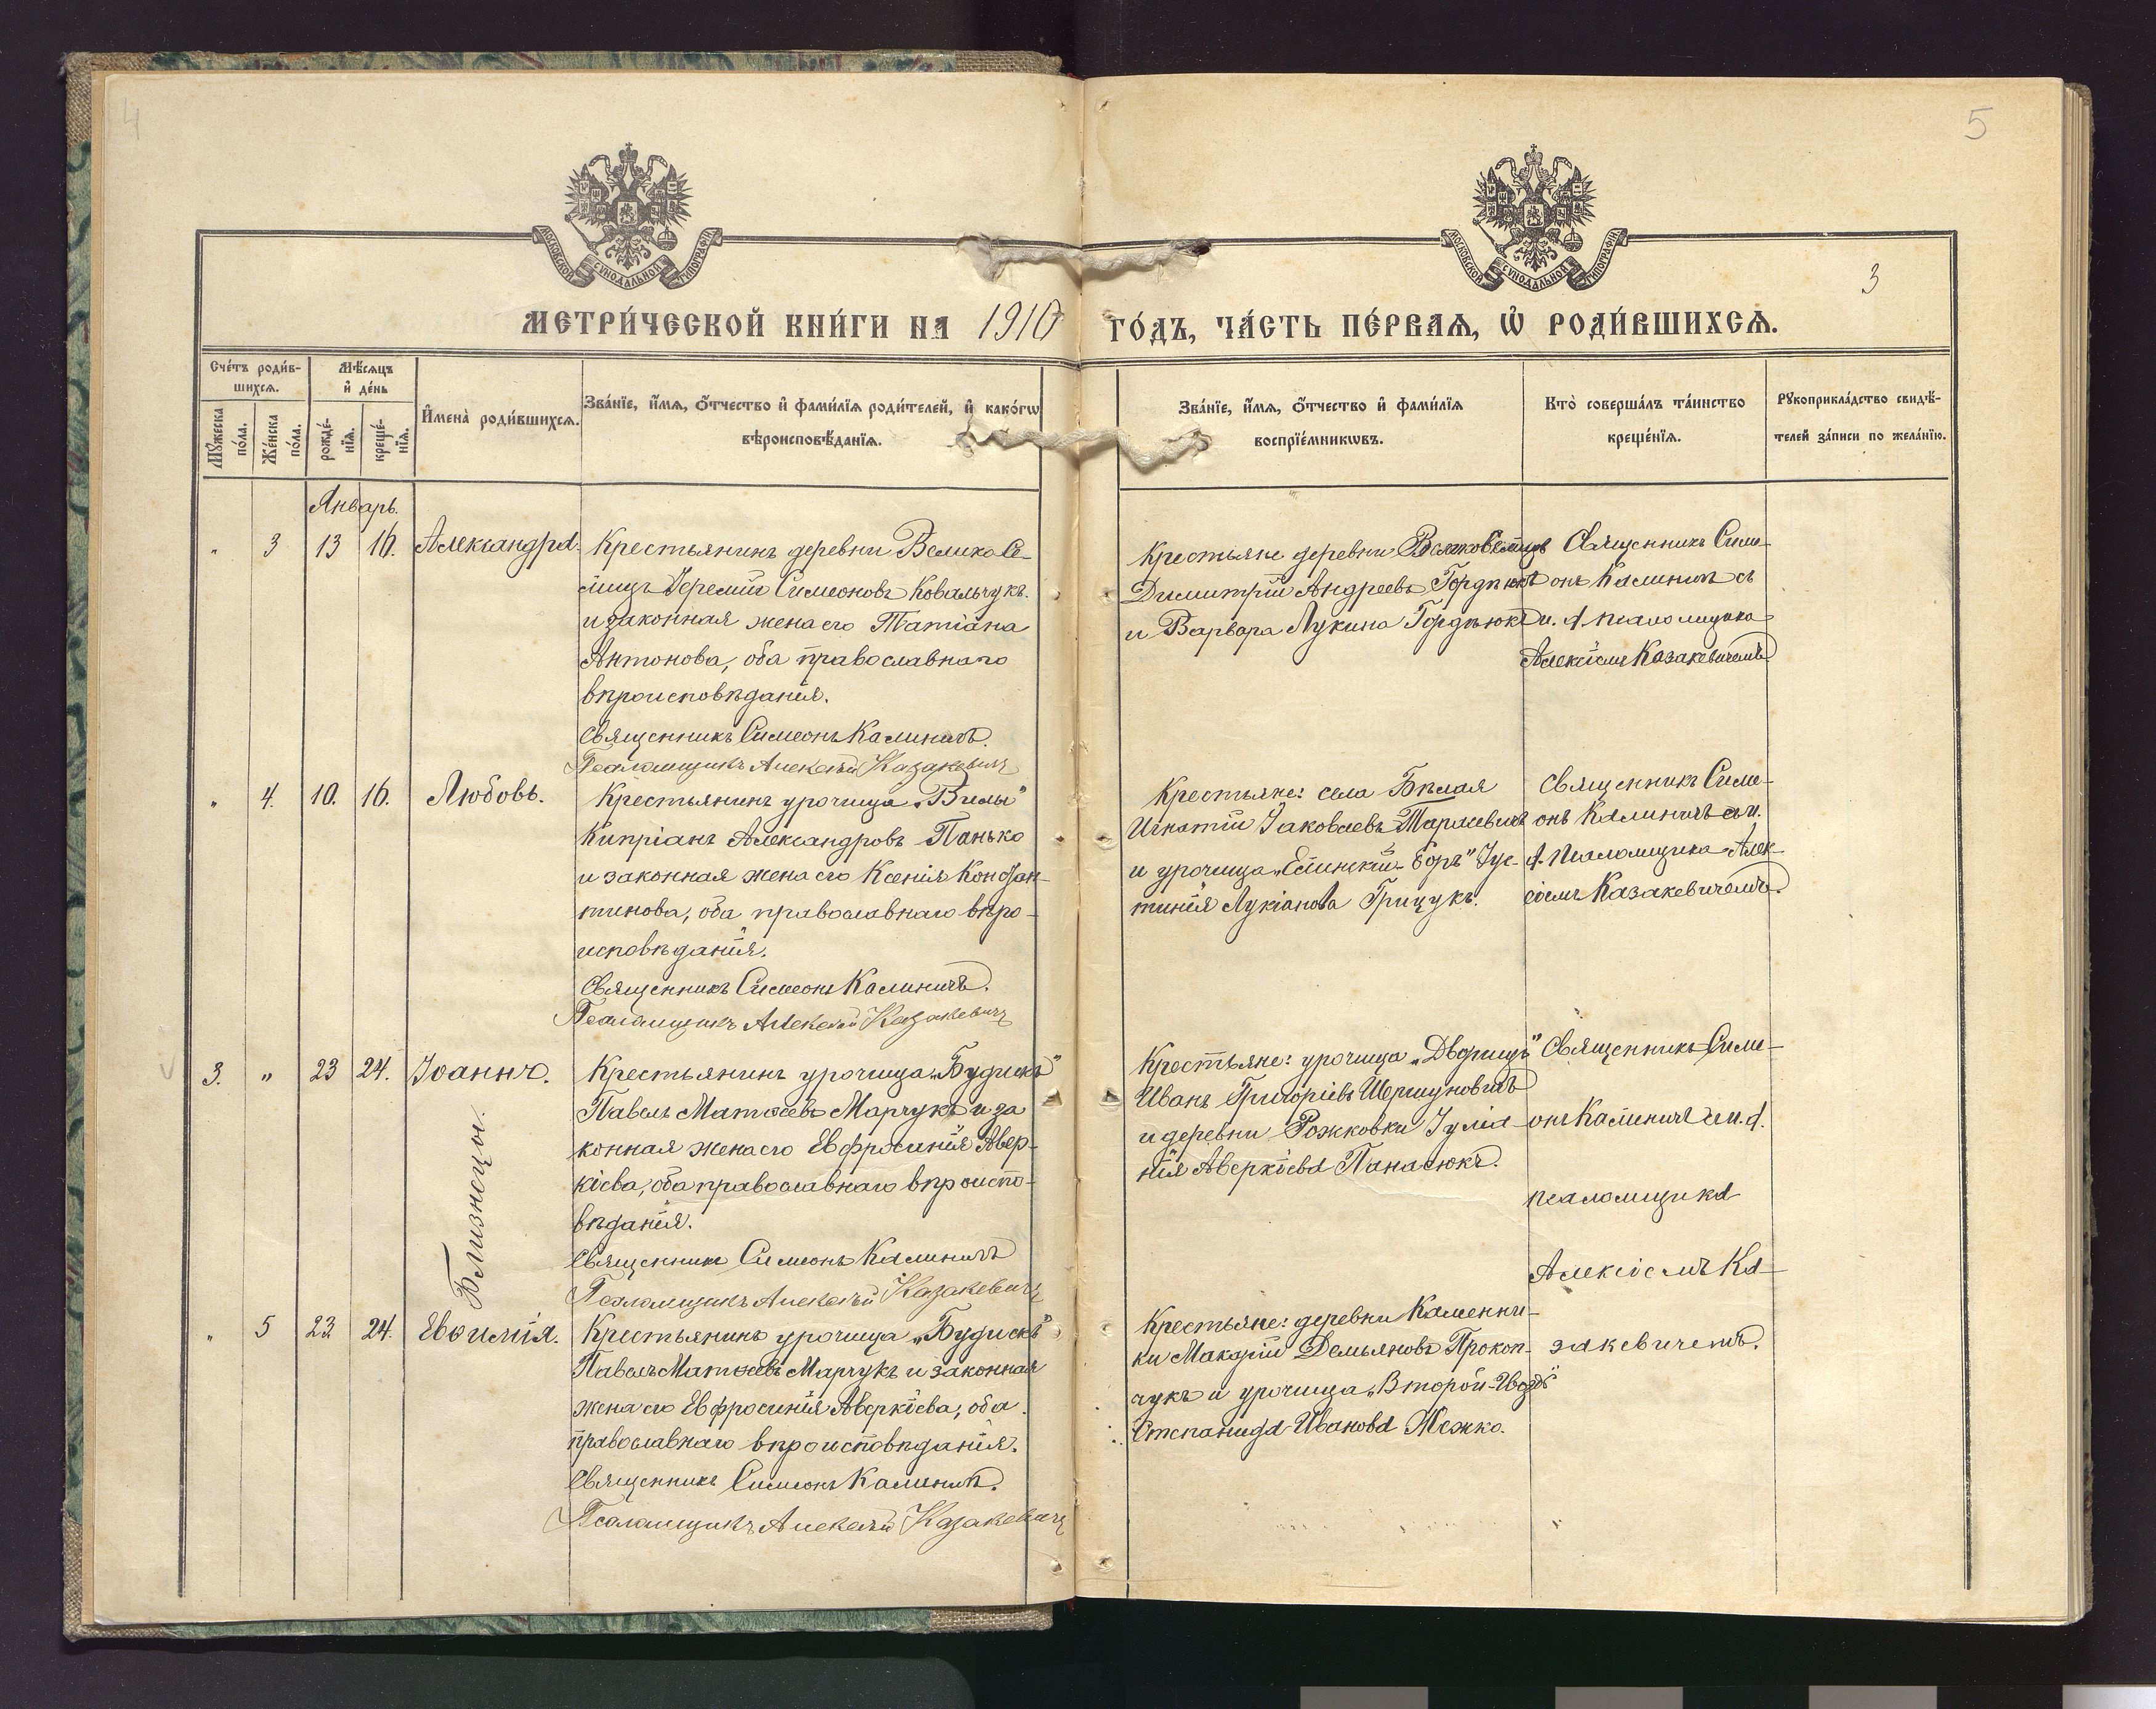 4
5
МОСКОВСКОЙ СѴНОДАЛЬНОЙ ТИПОГРАФІИ
МОСКОВСКОЙ СѴНОДАЛЬНОЙ ТИПОГРАФІИ
3
МЕТРИ́ЧЕСКОЙ КНИ́ГИ НА 1910 ГО́ДЪ, ЧА́СТЬ ПЕ́РВАѦ, Ѡ҆ РОДИ́ВШИХСѦ.
Сче́тъ роди́в-
шихсѧ.
Мꙋ́жеска
по́ла.
Же́нска
по́ла.
Мѣ́сѧцъ
и҆ де́нь
рожде́-
нїѧ.
креще́-
нїѧ.
И҆мена̀ роди́вшихсѧ.
Зва́нїе, и҆́мѧ, ѻ҆́тчество и҆ фами́лїѧ роди́телей, и҆ како́гѡ
вѣроисповѣ́данїѧ.
Зва́нїе, и҆́мѧ, ѻ҆́тчество и҆ фами́лїѧ
воспрїе́мникѡвъ.
Кто̀ соверша́лъ та́инство
креще́нїѧ.
Рꙋкоприкла́дство свидѣ́-
телей за́писи по жела́нїю.
Январь.
" 3 13 16. Александра.
Крестьянинъ деревни Велико Се-
лицъ Іеремій Симеоновъ Ковальчукъ
и законная жена его Татіана
Антонова, оба православнаго
вѣроисповѣданія.
Священникъ Симеонъ Калиничъ.
Псаломщикъ Алексѣй Казакевичъ
Крестьяне деревни ВеликоСелицъ
Димитрій Андреевъ Гордѣюкъ
и Варвара Лукина Гордѣюкъ
Священникъ Симе-
онъ Калиничъ съ
и. д. псаломщика
Алексіемъ Казакевичемъ
" 4. 10. 16. Любовь.
Крестьянинъ урочища „Вилы"
Кипріанъ Александровъ Панько
и законная жена его Ксенія Констан-
тинова, оба православнаго вѣро-
исповѣданія.
Священникъ Симеонъ Калиничъ.
Псаломщикъ Алексѣй Казакевичъ
Крестьяне: села Бѣлая
Игнатій Іаковлевъ Тарасевичъ
и урочища „ Боръ" Іус-
тинія Лукіанова Грицукъ.
Священникъ Симе-
онъ Калиничъ съ и.
д. псаломщика Алек-
сіемъ Казакевичемъ
3. " 23 24. Іоаннъ.
Близнецы.
Крестьянинъ урочища „Будискъ"
Павелъ Матѳеевъ Марчукъ и за
конная жена его Евфросинія Авер-
кіева, оба православнаго вѣроиспо-
вѣданія.
Священникъ Симеонъ Калиничъ
Псаломщикъ Алексѣй Казакевичъ
Крестьяне: урочища „Дворищъ"
Иванъ Григоріевъ Шершуновичъ
и деревни Рожковки Іуліа-
нія Аверкіева Панасюкъ.
Священникъ Симе-
онъ Калиничъ съ и. д.
псаломщика
Алексіемъ Ка-
закевичемъ.
" 5 23. 24. Евѳимія.
Крестьянинъ урочища „Будискъ"
Павелъ Матѳеевъ Марчукъ и законная
жена его Евфросинія Аверкіева, оба
православнаго вѣроисповѣданія.
Священникъ Симеонъ Калиничъ.
Псаломщикъ Алексѣй Казакевичъ
Крестьяне: деревни Каменни-
ки Макарій Демьяновъ Прокоп-
чукъ и урочища „Второй-Гвоздь"
Степанида Иванова Межко.